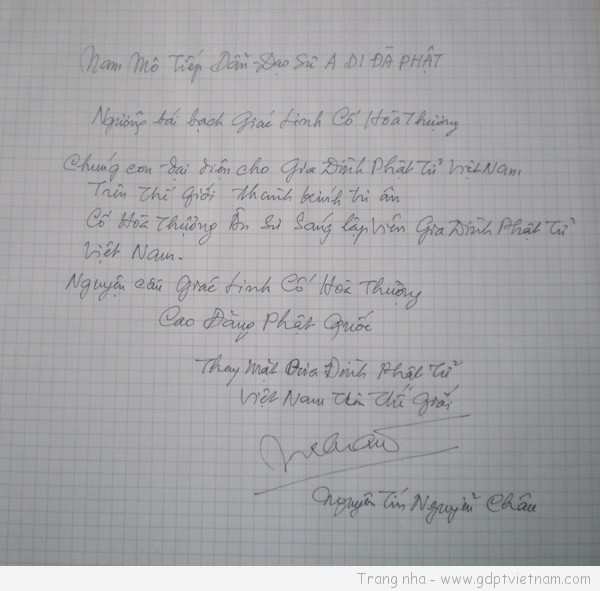 Nam Mô Tiếp Dẫn Đạo Sư A DI ĐÀ PHẬT
Ngưỡng bái bạch Giác Linh Cố Hòa Thượng
Chúng con đại diện cho Gia Đình Phật Tử Việt Nam
Trên Thế giới thành kính tri ân
Cố Hòa Thượng Ân Sư Sáng lập viên Gia Đình Phật Tử
Việt Nam.
Nguyện cầu Giác Linh Cố Hòa Thượng
Cao Đăng Phật Quốc
Thay Mặt Gia Đình Phật Tử
Việt Nam Trên Thế Giới
Nguyên Tín Nguyễn Châu
Trang nha - www.gdptvietnam.com